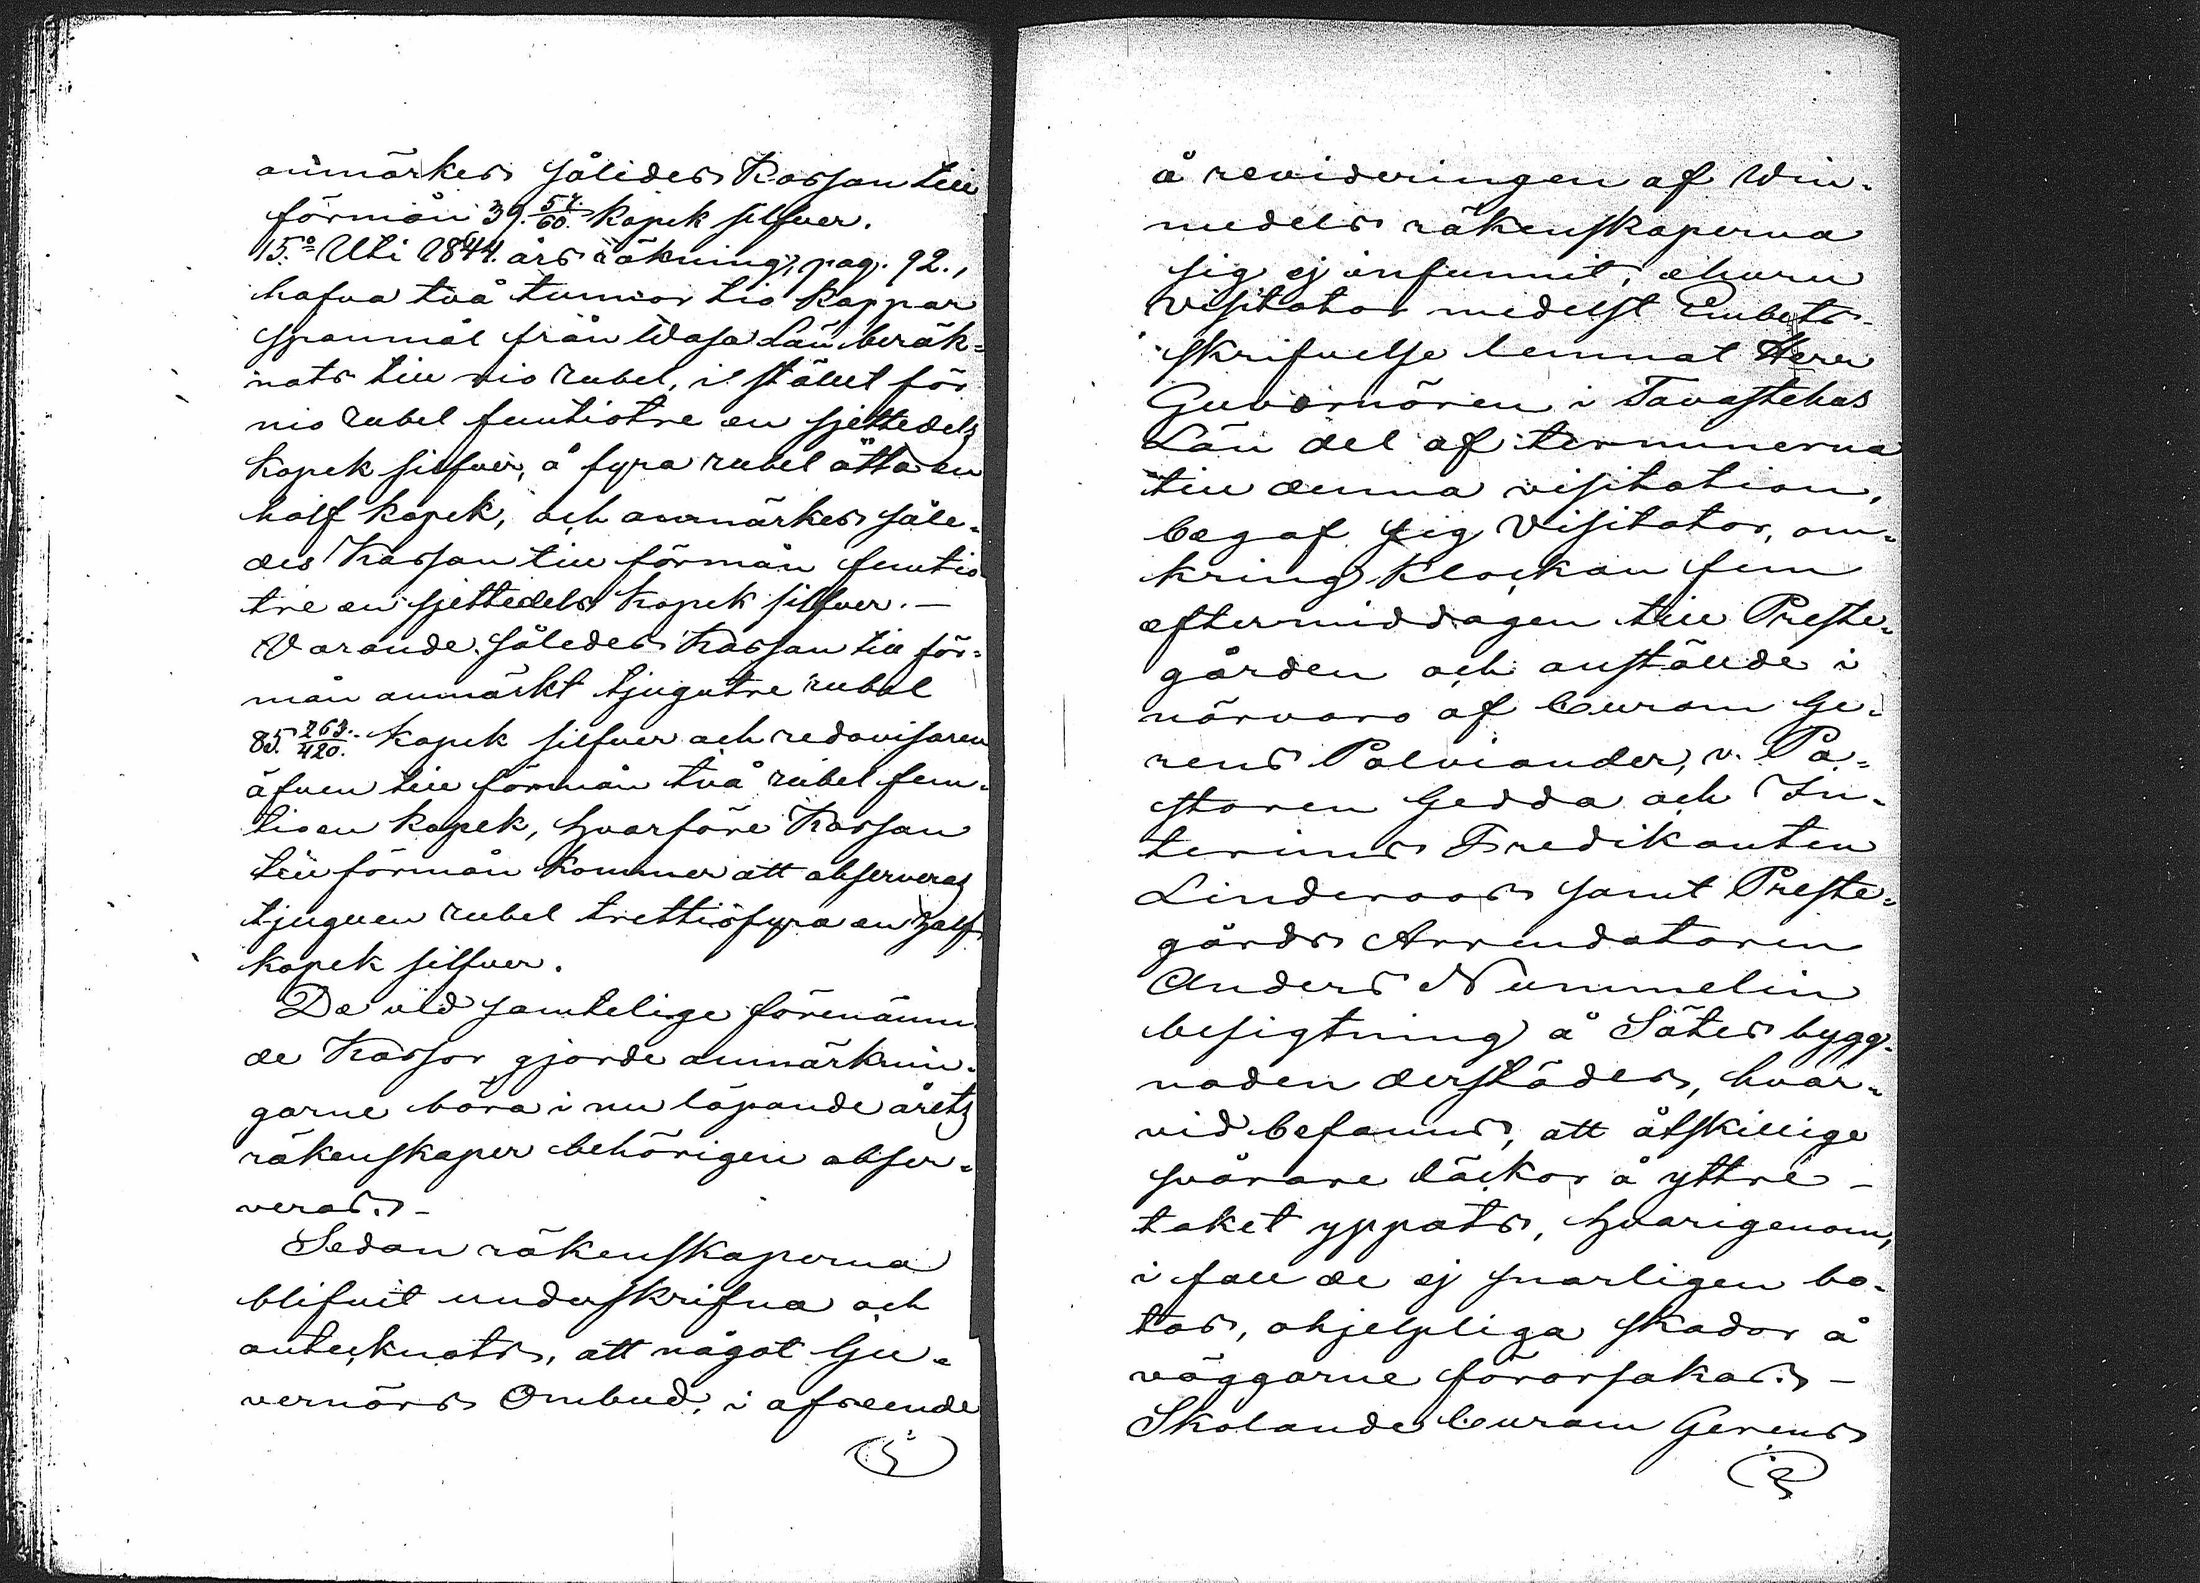 anmärkes sålides Kassan till
förmån 39. 57/60. kopek silfver.
15.o Uti 1844. års räkning, pag. 92.,
hafva två tunnor tio kappar
spanmål från Wasa Län beräk=
nats till nio rubel, i stället för
nio rubel femtiotre en sjettedels
kopek silfver, å fyra rubel åtta en
half kopek, och anmärkes såle=
des Kassan till förmån femtio
tre en sjettedels kopek silfver.—
Varande således Kassan till för=
mån anmärkt tjugutre rubel
85. 263./420. kopek silfver och redovisaren
äfven till förmån två rubel fem=
tioen kopek, hvarföre Kassan
till förmån kommer att observeras
tjuguen rubel trettiofyra en half
kopek silfver.
De vid samtelige förenämn
de Kassor gjorde anmärknin=
garne böra i nu löpande årets
räkenskaper behörigen obser=
veras.—
Sedan räkenskaperna
blifvit underskrifna och
antecknats, att något Gu=
vernörs Ombud, i afseende
å revideringen af Win=
medels räkenskaperna
sig ej infunnit, ehuru
Visitator medelst Embets-
skrifvelse lemnat Herr
Guvernören i Tavastehus
Län del af terminerna
till denna visitation,
begaf sig Visitator, om=
kring klockan fem
eftermiddagen till Preste=
gården och anställde i
närvaro af Curam Ge=
rens Palviander, v. Pa=
storen Gedda och In=
terims Predikanten
Linderoos samt Preste=
gårds Arrendatoren
Anders Nummelin
besigtning å Sätes bygg=
naden derstädes, hvar=
vid befanns, att åtskillige
svårare läckor å yttre—
taket yppats, hvarigenom,
i fall de ej snarligen bo=
tas, ohjelpliga skador å
väggarne förorsakas.—
Skolande Curam Gerens